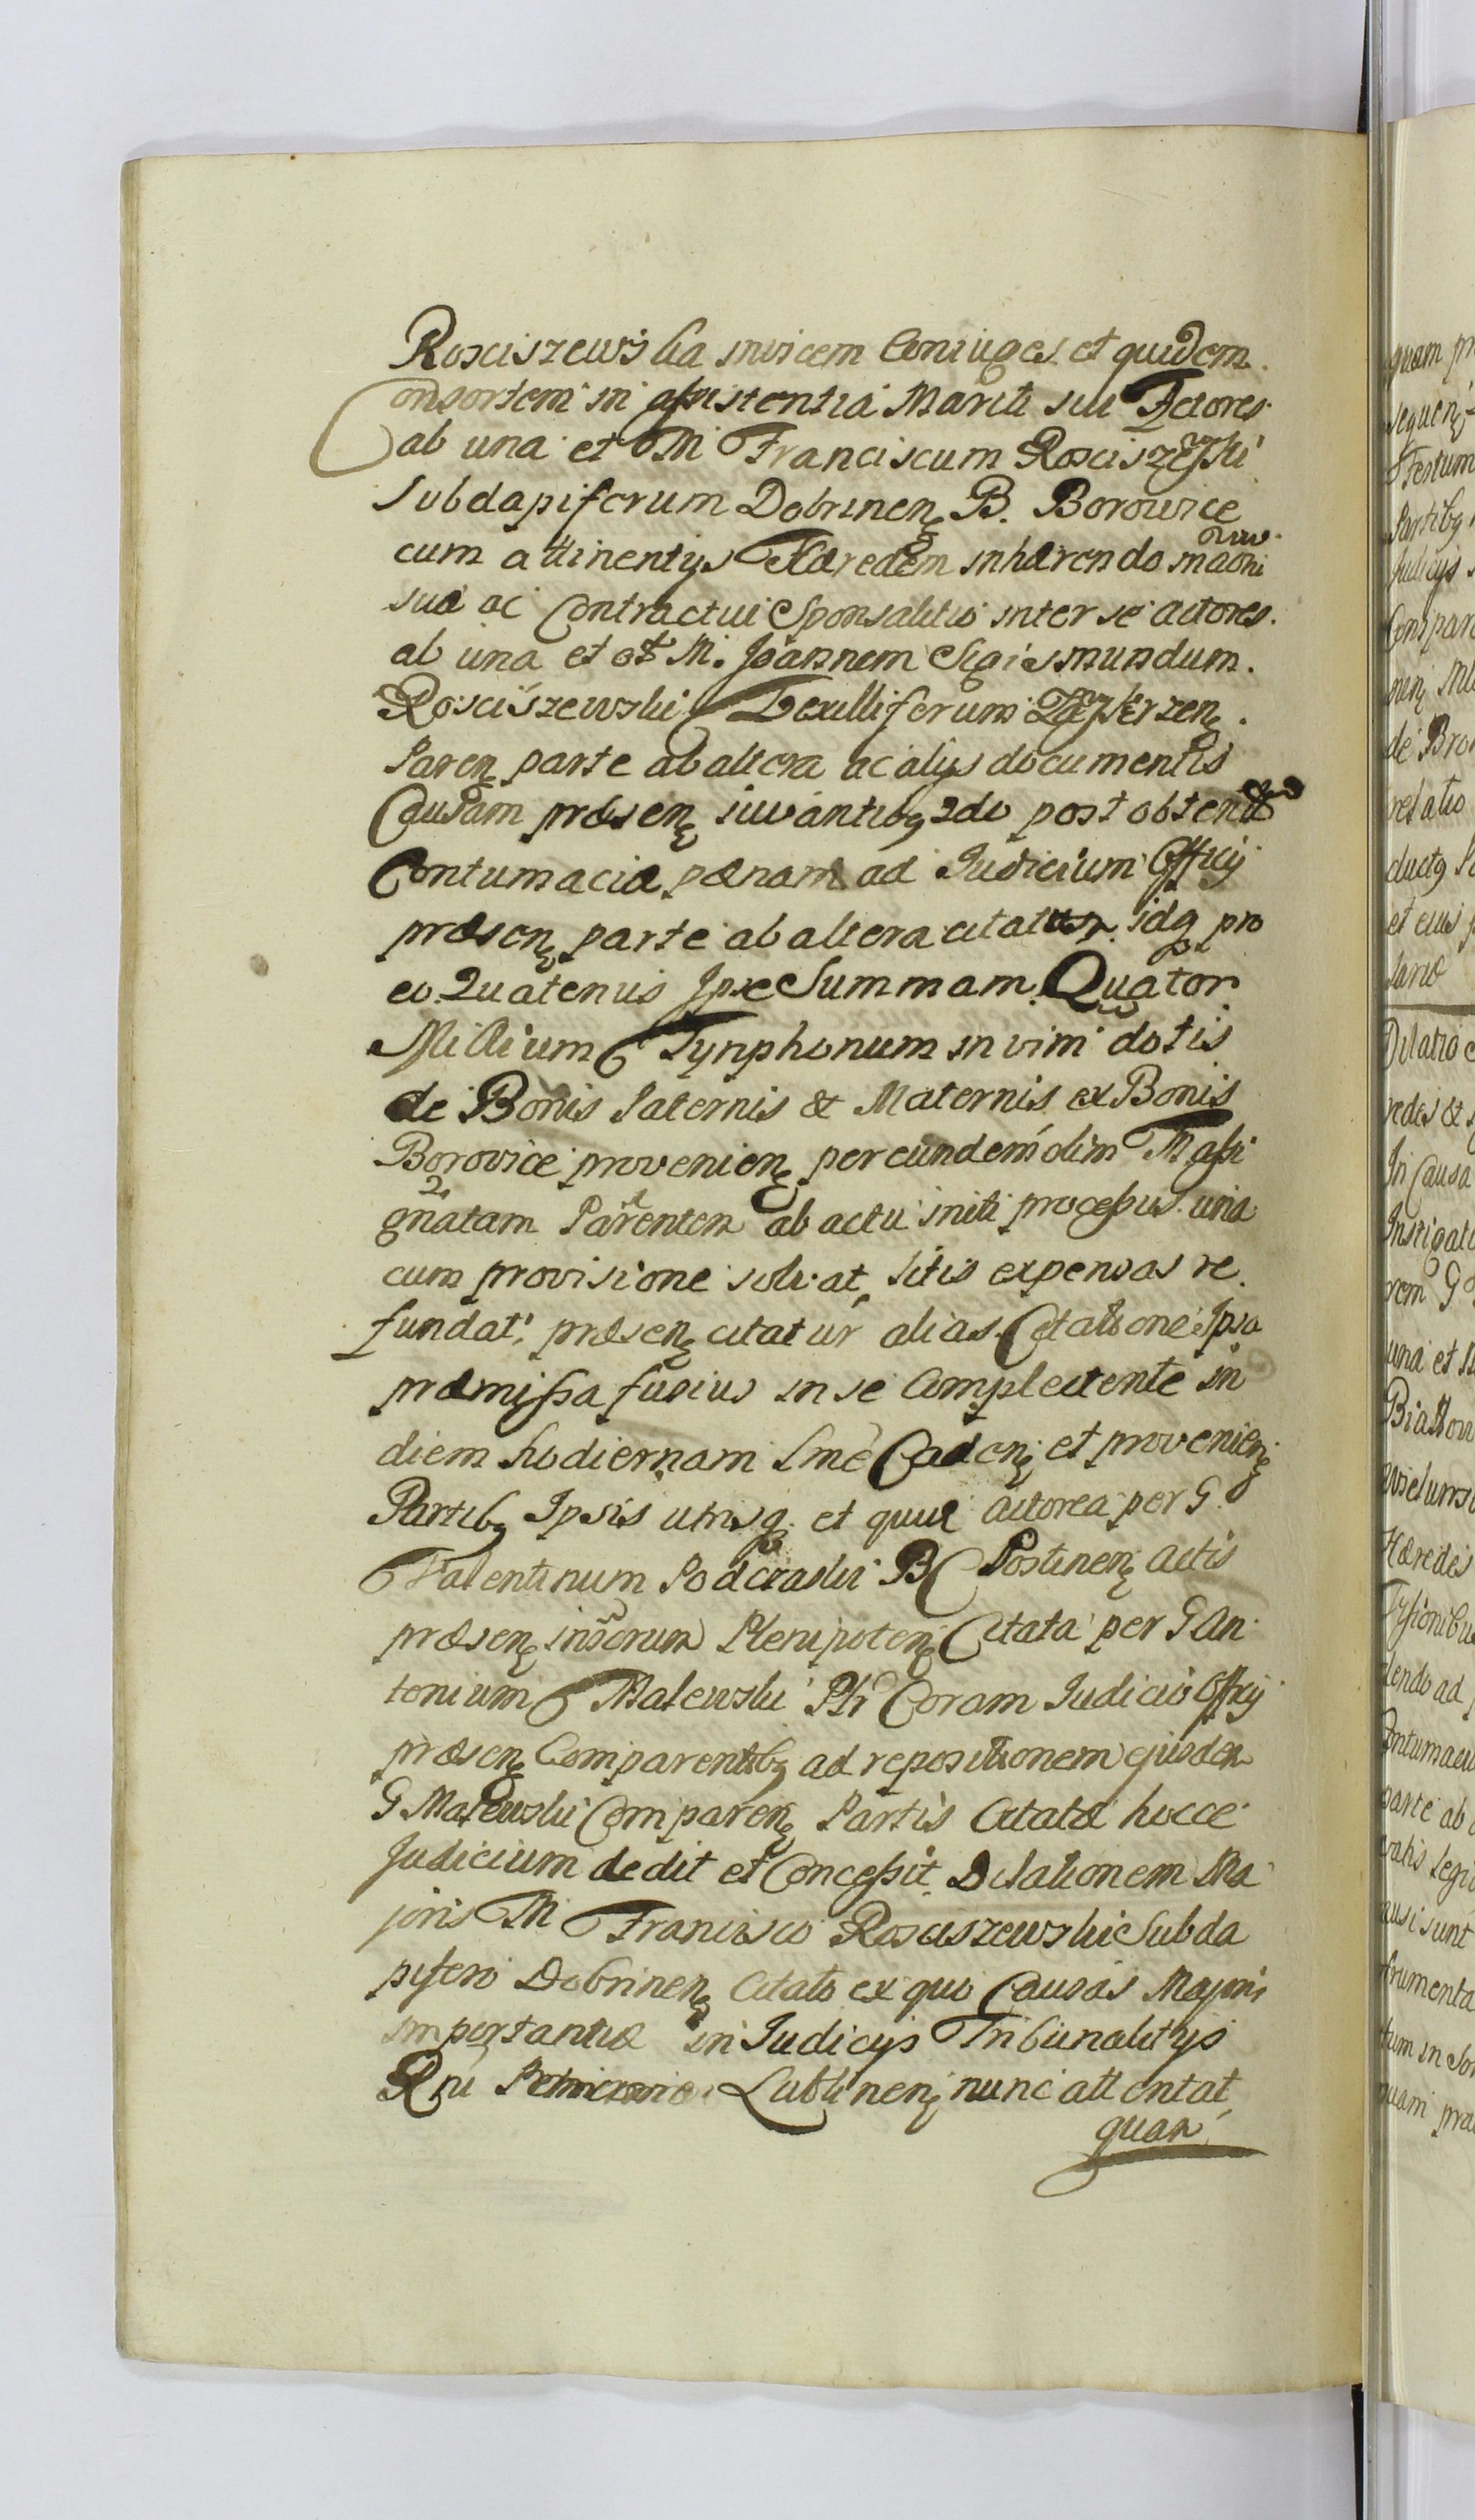 Rosciszewska invicem Coniuges et quidem
Consortem in assistentia Mariti sui Actores
ab una et M Franciscum Rosciszewski
Subdapiferum Dobrinenę B. Borowice
cum attinentys Hæredem inhærendo
suæ ac Contractui Sponsalitio inter se actores
ab una et M. Joannem Sigismundum
Rosciszewski Vexilliferum
Paren parte ab altera ac alys documentis
Causam præsenę iuvantibq 2do post obtentæ
Contumaciæ pænam ad Judicium Officy
præsenę parte ab altera citatur idq pro
eo Quatenus Ipse Summam Quator
Millium Tynphonum in vim dotis
de Bonis Paternis & Maternis ex Bonis
Borovice provenienę per eundem olim M assi
gnatam Parentem ab actu initi processus una
cum provisione solvat litis expensas re
fundat præsenę citatur alias Citatione Ipsa
præmissa fusius in se Complectente in
diem hodiernam lmè Cadenę et provenienę
Partibq Ipsis utrisq et quidem actorea per G
Valentinum Podczaski B Postinenę actis
præsenę Plenipotenę Citata per G An
tonium Malewski Plr Coram Judicio Officy
præsenę Comparentibq ad repositionem ejusdem
G Malewski Comparenę Partis Citatæ hocce
Judicium dedit et Concessit Dilationem Ma
joris M Francisco Rosciszewski Subda
pifero Dobrinenę Citato ex quo Causas Majoris
importantiæ in Judicys Tribunalitys
Rni Lublinenę nunc attentat
quam
quam pr
Dilatio
In Causa
Instigat
una et
Hæredes
parte ab